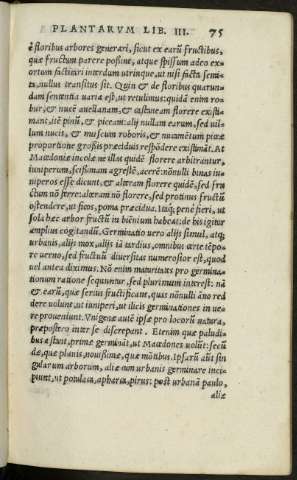 PLANTARVM LIB. III. 75
è floribus arbores generari, sicut ex earũ fructibus,
quæ fructum parere possint, atque spissum adeo ex-
ortum factitari interdum utrinque, ut nisi facta semi-
ta, nullus transitus sit. Quin & de floribus quarun-
dam sententia uaria est, ut retulimus: quidã enim ro
bur, & nucẽ auellanam, & castaneam florere existi-
mant, itẽ pinũ, & piceam: alij nullam earum, sed iul-
lum nucis, & muscum roboris, & nucamẽtum pineæ
proportione grossis præciduis respõdere existimãt. At
Macedoniæ incolæ ne illas quidẽ florere arbitrantur,
iuniperum, scissimam agrestẽ, acerẽ: nõnulli binas iu-
niperos esse dicunt, & alteram florere quidẽ, sed fru
ctum nõ ferre: alteram nõ florere, sed protinus fructũ
ostendere, ut ficos, poma præcidua. Itaq; penè fieri, ut
sola hæc arbor fructũ in biẽnium habeat: de his igitur
amplius cogitandũ. Germinatio uero alijs simul, atq;
urbanis, alijs mox, alijs iã tardius, omnibus autẽ tẽpo-
re uerno, sed fructuũ diuersitas numerosior est, quod
uel antea diximus. Nõ enim maturitates pro germina-
tionum ratione sequuntur, sed plurimum interest: nã
& earũ, quæ serius fructificant, quas nõnulli ãno red
dere uolunt, ut iuniperi, ut ilicis germinationes in ue-
re proueniunt. Vnigenæ autẽ ipsæ pro locorũ natura,
præpostero inter se discrepant. Etenim quæ paludi-
bus æstunt, primæ germinãt, ut Macedones uolũt: secũ
dæ, quæ planis, nouissimæ, quæ mõtibus. Ipsarũ aũt sin
gularum arborum, aliæ cum urbanis germinare inci-
piunt, ut portulaca, apharca, pirus: post urbanã paulo,
aliæ